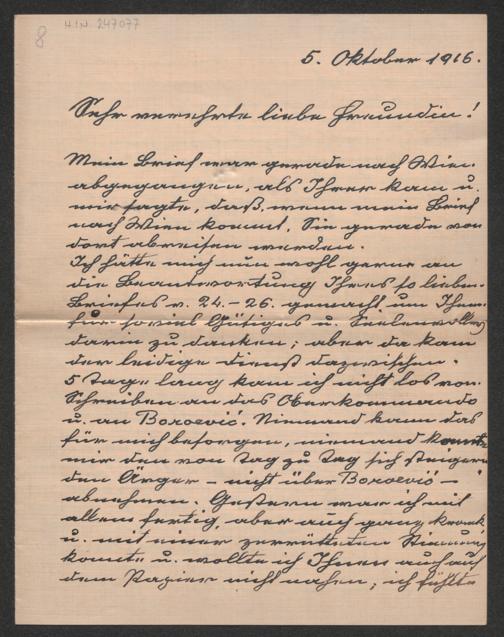 8
H.I.N. 247077
5. Oktober 1916.
Sehr verehrte liebe Freundin!
Mein Brief war gerade nach Wien
abgegangen, als Ihrer kam u.
mir sagte, daß, wenn mein Brief
nach Wien kommt, Sie gerade von
dort abreisen werden.
Ich hätte mich nun wohl gerne an
die Beantwortung Ihres so lieben
Briefes v. 24.–26. gemacht um Ihnen
für soviel Gütiges u. Seelenvolles
darin zu danken; aber da kam
der leidige Dienst dazwischen.
5 Tage lang kam ich nicht los von
Schreiben an das Oberkommando
u. an Boroević. Niemand kann das
für mich besorgen, niemand konnte
mir den von Tag zu Tag sich steigern
den Ärger – nicht über Boroević –
abnehmen. Gestern war ich mit
allem fertig, aber auch ganz krank
u. mit einer zerrütteten Stimmung
konnte u. wollte ich Ihnen auch auf
dem Papier nicht nahen; ich fühlte